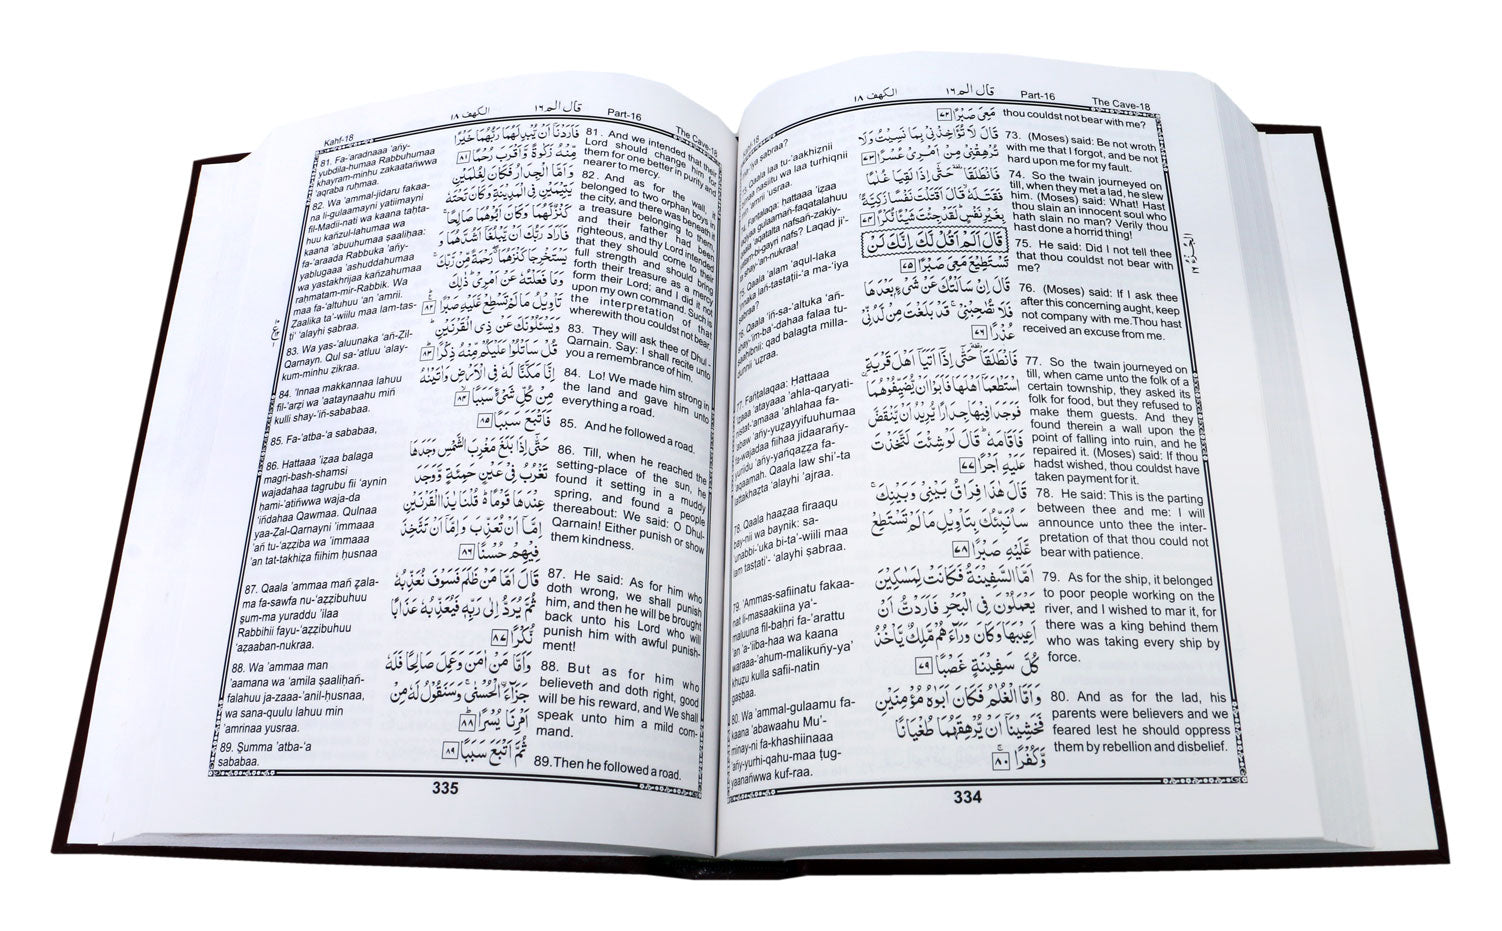 الكهف ١٨ قال الم ١٦ Part-16 The Cave-18
thou couldst not bear with me?
73. (Moses) said: Be not wroth
with me that I forgot, and be not
hard upon me for my fault.
74. So the twain journeyed on
till, when they met a lad, he slew
him. (Moses) said: What! Hast
thou slain an innocent soul who
hath slain no man? Verily thou
hast done a horrid thing!
75. He said: Did I not tell thee
that thou couldst not bear with
me?
76. (Moses) said: If I ask thee
after this concerning aught, keep
not company with me.Thou hast
received an excuse from me.
77. So the twain journeyed on
till, when came unto the folk of a
certain township, they asked its
folk for food, but they refused to
make them guests. And they
found therein a wall upon the
point of falling into ruin, and he
repaired it. (Moses) said: If thou
hadst wished, thou couldst have
taken payment for it.
78. He said: This is the parting
between thee and me: I will
announce unto thee the inter-
pretation of that thou could not
bear with patience.
79. As for the ship, it belonged
to poor people working on the
river, and I wished to mar it, for
there was a king behind them
who was taking every ship by
force.
80. And as for the lad, his
parents were believers and we
feared lest he should oppress
them by rebellion and disbelief.
مَعِىَ صَبْرًا ٧٢
قَالَ لَا تُؤَاخِذْنِىْ بِمَا نَسِيْتُ وَلَا
تُرْهِقْنِىْ مِنْ اَمْرِىْ عُسْرًا ٧٣
فَانْطَلَقَا حَتّٰىٓ اِذَا لَقِيَا غُلٰمًا
فَقَتَلَهٗ قَالَ اَقَتَلْتَ نَفْسًا زَكِيَّةًۢ
بِغَيْرِ نَفْسٍ لَقَدْ جِئْتَ شَيْئًا نُّكْرًا ٧٤
قَالَ اَلَمْ اَقُلْ لَّكَ اِنَّكَ لَنْ
تَسْتَطِيْعَ مَعِىَ صَبْرًا ٧٥
قَالَ اِنْ سَاَلْتُكَ عَنْ شَىْءٍۢ بَعْدَهَا
فَلَا تُصٰحِبْنِىْ قَدْ بَلَغْتَ مِنْ لَّدُنِّىْ
عُذْرًا ٧٦
فَانْطَلَقَا حَتّٰىٓ اِذَآ اَتَيَآ اَهْلَ قَرْيَةِ
اِسْتَطْعَمَآ اَهْلَهَا فَاَبَوْا اَنْ يُّضَيِّفُوْهُمَا
فَوَجَدَا فِيْهَا جِدَارًا يُّرِيْدُ اَنْ يَّنْقَضَّ
فَاَقَامَهٗ قَالَ لَوْ شِئْتَ لَتَّخَذْتَ
عَلَيْهِ اَجْرًا ٧٧
قَالَ هٰذَا فِرَاقُ بَيْنِىْ وَبَيْنِكَ
سَاُنَبِّئُكَ بِتَاْوِيْلِ مَا لَمْ تَسْتَطِعْ
عَّلَيْهِ صَبْرًا ٧٨
اَمَّا السَّفِيْنَةُ فَكَانَتْ لِمَسٰكِيْنَ
يَعْمَلُوْنَ فِى الْبَحْرِ فَاَرَدْتُّ اَنْ
اَعِيْبَهَا وَكَانَ وَرَآءَهُمْ مَّلِكٌ يَّاْخُذُ
كُلَّ سَفِيْنَةٍ غَصْبًا ٧٩
وَاَمَّا الْغُلٰمُ فَكَانَ اَبَوٰهُ مُؤْمِنَيْنِ
فَخَشِيْنَآ اَنْ يُّرْهِقَهُمَا طُغْيَانًا
وَّكُفْرًا ٨٠
78. Qaala haaẓaa firaaqu
bay-nii wa baynik: sa-
79. 'Ammas-safiinatu fakaa-
nat li-masaakiina ya'-
maluuna fil-baḥri fa-'arattu
'an 'a-'iiba-haa wa kaana
waraaa-'ahum-malikuñy-ya'
khuẓu kulla safii-natin
gasbaa.
80. Wa 'ammal-gulaamu fa-
kaana 'abawaahu Mu'-
minay-ni fa-khashiinaaa
'añy-yurhi-qahu-maa ṭug-
yaanañwwa kuf-raa.
334
Kahf-18 الكهف ١٨ قال الم ١٦ Part-16 The Cave-18
81. Fa-'aradnaaa 'añy-
yubdila-humaa Rabbuhumaa
khayram-minhu zakaatañwwa
'aqraba ruḥmaa.
82. Wa 'ammal-jidaru fakaa-
na li-gulaamayni yatiimayni
fil-Madii-nati wa kaana taḥta-
huu kañzul-lahumaa wa
kaana 'abuuhumaa ṣaaliḥaa:
fa-'araada Rabbuka 'añy-
yablugaaa 'ashuddahumaa
wa yastakhrijaa kañzahumaa
raḥmatam-mir-Rabbik. Wa
maa fa-'altuhuu 'an 'amrii.
Ẓaalika ta'-wiilu maa lam-tas-
ti' 'alayhi ṣabraa.
83. Wa yas-'aluunaka 'añ-Ẓil-
Qarnayn. Qul sa-'atluu 'alay-
kum-minhu ẓikraa.
84. 'Innaa makkannaa lahuu
fil-'arẓi wa 'aataynaahu miñ
kulli shay-'iñ-sababaa.
85. Fa-'atba-'a sababaa,
86. Hattaaa 'iẓaa balaga
magri-bash-shamsi
wajadahaa tagrubu fii 'aynin
ḥami-'atiñwwa waja-da
'iñdahaa Qawmaa. Qulnaa
yaa-Ẓal-Qarnayni 'immaaa
'añ tu-'aẓẓiba wa 'immaaa
an tat-takhiẓa fiihim ḥusnaa
87. Qaala 'ammaa mañ ẓala-
ma fa-sawfa nu-'aẓẓibuhuu
ṣum-ma yuraddu 'ilaa
Rabbihii fayu-'aẓẓibuhuu
'aẓaaban-nukraa.
88. Wa 'ammaa man
'aamana wa 'amila ṣaaliḥañ-
falahuu ja-zaaa-'anil-ḥusnaa,
wa sana-quulu lahuu min
'amrinaa yusraa.
89. Ṣumma 'atba-'a
sababaa.
فَاَرَدْنَآ اَنْ يُّبْدِلَهُمَا رَبُّهُمَا خَيْرًا
مِّنْهُ زَكٰوةً وَّاَقْرَبَ رُحْمًا ٨١
وَاَمَّا الْجِدَارُ فَكَانَ لِغُلٰمَيْنِ
يَتِيْمَيْنِ فِى الْمَدِيْنَةِ وَكَانَ تَحْتَهٗ
كَنْزٌ لَّهُمَا وَكَانَ اَبُوْهُمَا صَالِحًا
فَاَرَادَ رَبُّكَ اَنْ يَّبْلُغَآ اَشُدَّهُمَا وَ
يَسْتَخْرِجَا كَنْزَهُمَا رَحْمَةً مِّنْ رَّبِّكَ
وَمَا فَعَلْتُهٗ عَنْ اَمْرِىْ ذٰلِكَ
تَاْوِيْلُ مَا لَمْ تَسْطِعْ عَّلَيْهِ صَبْرًا ٨٢
وَيَسْئَلُوْنَكَ عَنْ ذِى الْقَرْنَيْنِ
قُلْ سَاَتْلُوْا عَلَيْكُمْ مِّنْهُ ذِكْرًا ٨٣
اِنَّا مَكَّنَّا لَهٗ فِى الْاَرْضِ وَاٰتَيْنٰهُ
مِنْ كُلِّ شَىْءٍ سَبَبًا ٨٤
فَاَتْبَعَ سَبَبًا ٨٥
حَتّٰىٓ اِذَا بَلَغَ مَغْرِبَ الشَّمْسِ وَجَدَهَا
تَغْرُبُ فِىْ عَيْنٍ حَمِئَةٍ وَّوَجَدَ
عِنْدَهَا قَوْمًا قُلْنَا يٰذَا الْقَرْنَيْنِ
اِمَّآ اَنْ تُعَذِّبَ وَاِمَّآ اَنْ تَتَّخِذَ
فِيْهِمْ حُسْنًا ٨٦
قَالَ اَمَّا مَنْ ظَلَمَ فَسَوْفَ نُعَذِّبُهٗ
ثُمَّ يُرَدُّ اِلٰى رَبِّهٖ فَيُعَذِّبُهٗ عَذَابًا
نُّكْرًا ٨٧
وَاَمَّا مَنْ اٰمَنَ وَعَمِلَ صَالِحًا فَلَهٗ
جَزَآءَ ۨالْحُسْنٰى وَسَنَقُوْلُ لَهٗ مِنْ
اَمْرِنَا يُسْرًا ٨٨
ثُمَّ اَتْبَعَ سَبَبًا ٨٩
81. And we intended that their
Lord should change him for
them for one better in purity and
nearer to mercy.
82. And as for the wall, it
belonged to two orphan boys in
the city, and there was beneath it
a treasure belonging to them
and their father had been
righteous, and thy Lord intended
that they should come to their
full strength and should bring
forth their treasure as a mercy
form their Lord; and I did it not
upon my own command. Such is
the interpretation of that
wherewith thou couldst not bear.
83. They will ask thee of Dhul-
Qarnain. Say: I shall recite unto
you a remembrance of him.
84. Lo! We made him strong in
the land and gave him unto
everything a road.
85. And he followed a road.
86. Till, when he reached the
setting-place of the sun, he
found it setting in a muddy
spring, and found a people
thereabout: We said: O Dhul-
Qarnain! Either punish or show
them kindness.
87. He said: As for him who
doth wrong, we shall punish
him, and then he will be brought
back unto his Lord who will
punish him with awful punish-
ment!
88. But as for him who
believeth and doth right, good
will be his reward, and We shall
speak unto him a mild com-
mand.
89.Then he followed a road.
335